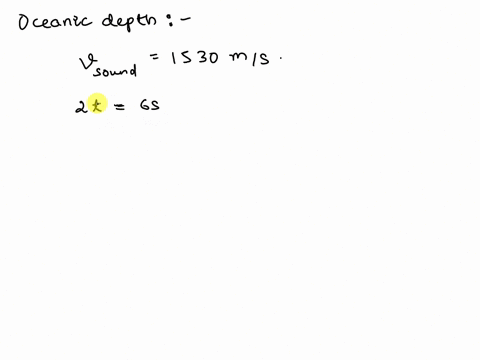 Oceanic depth :-
V sound = 1530 m/s.
2t = 6s